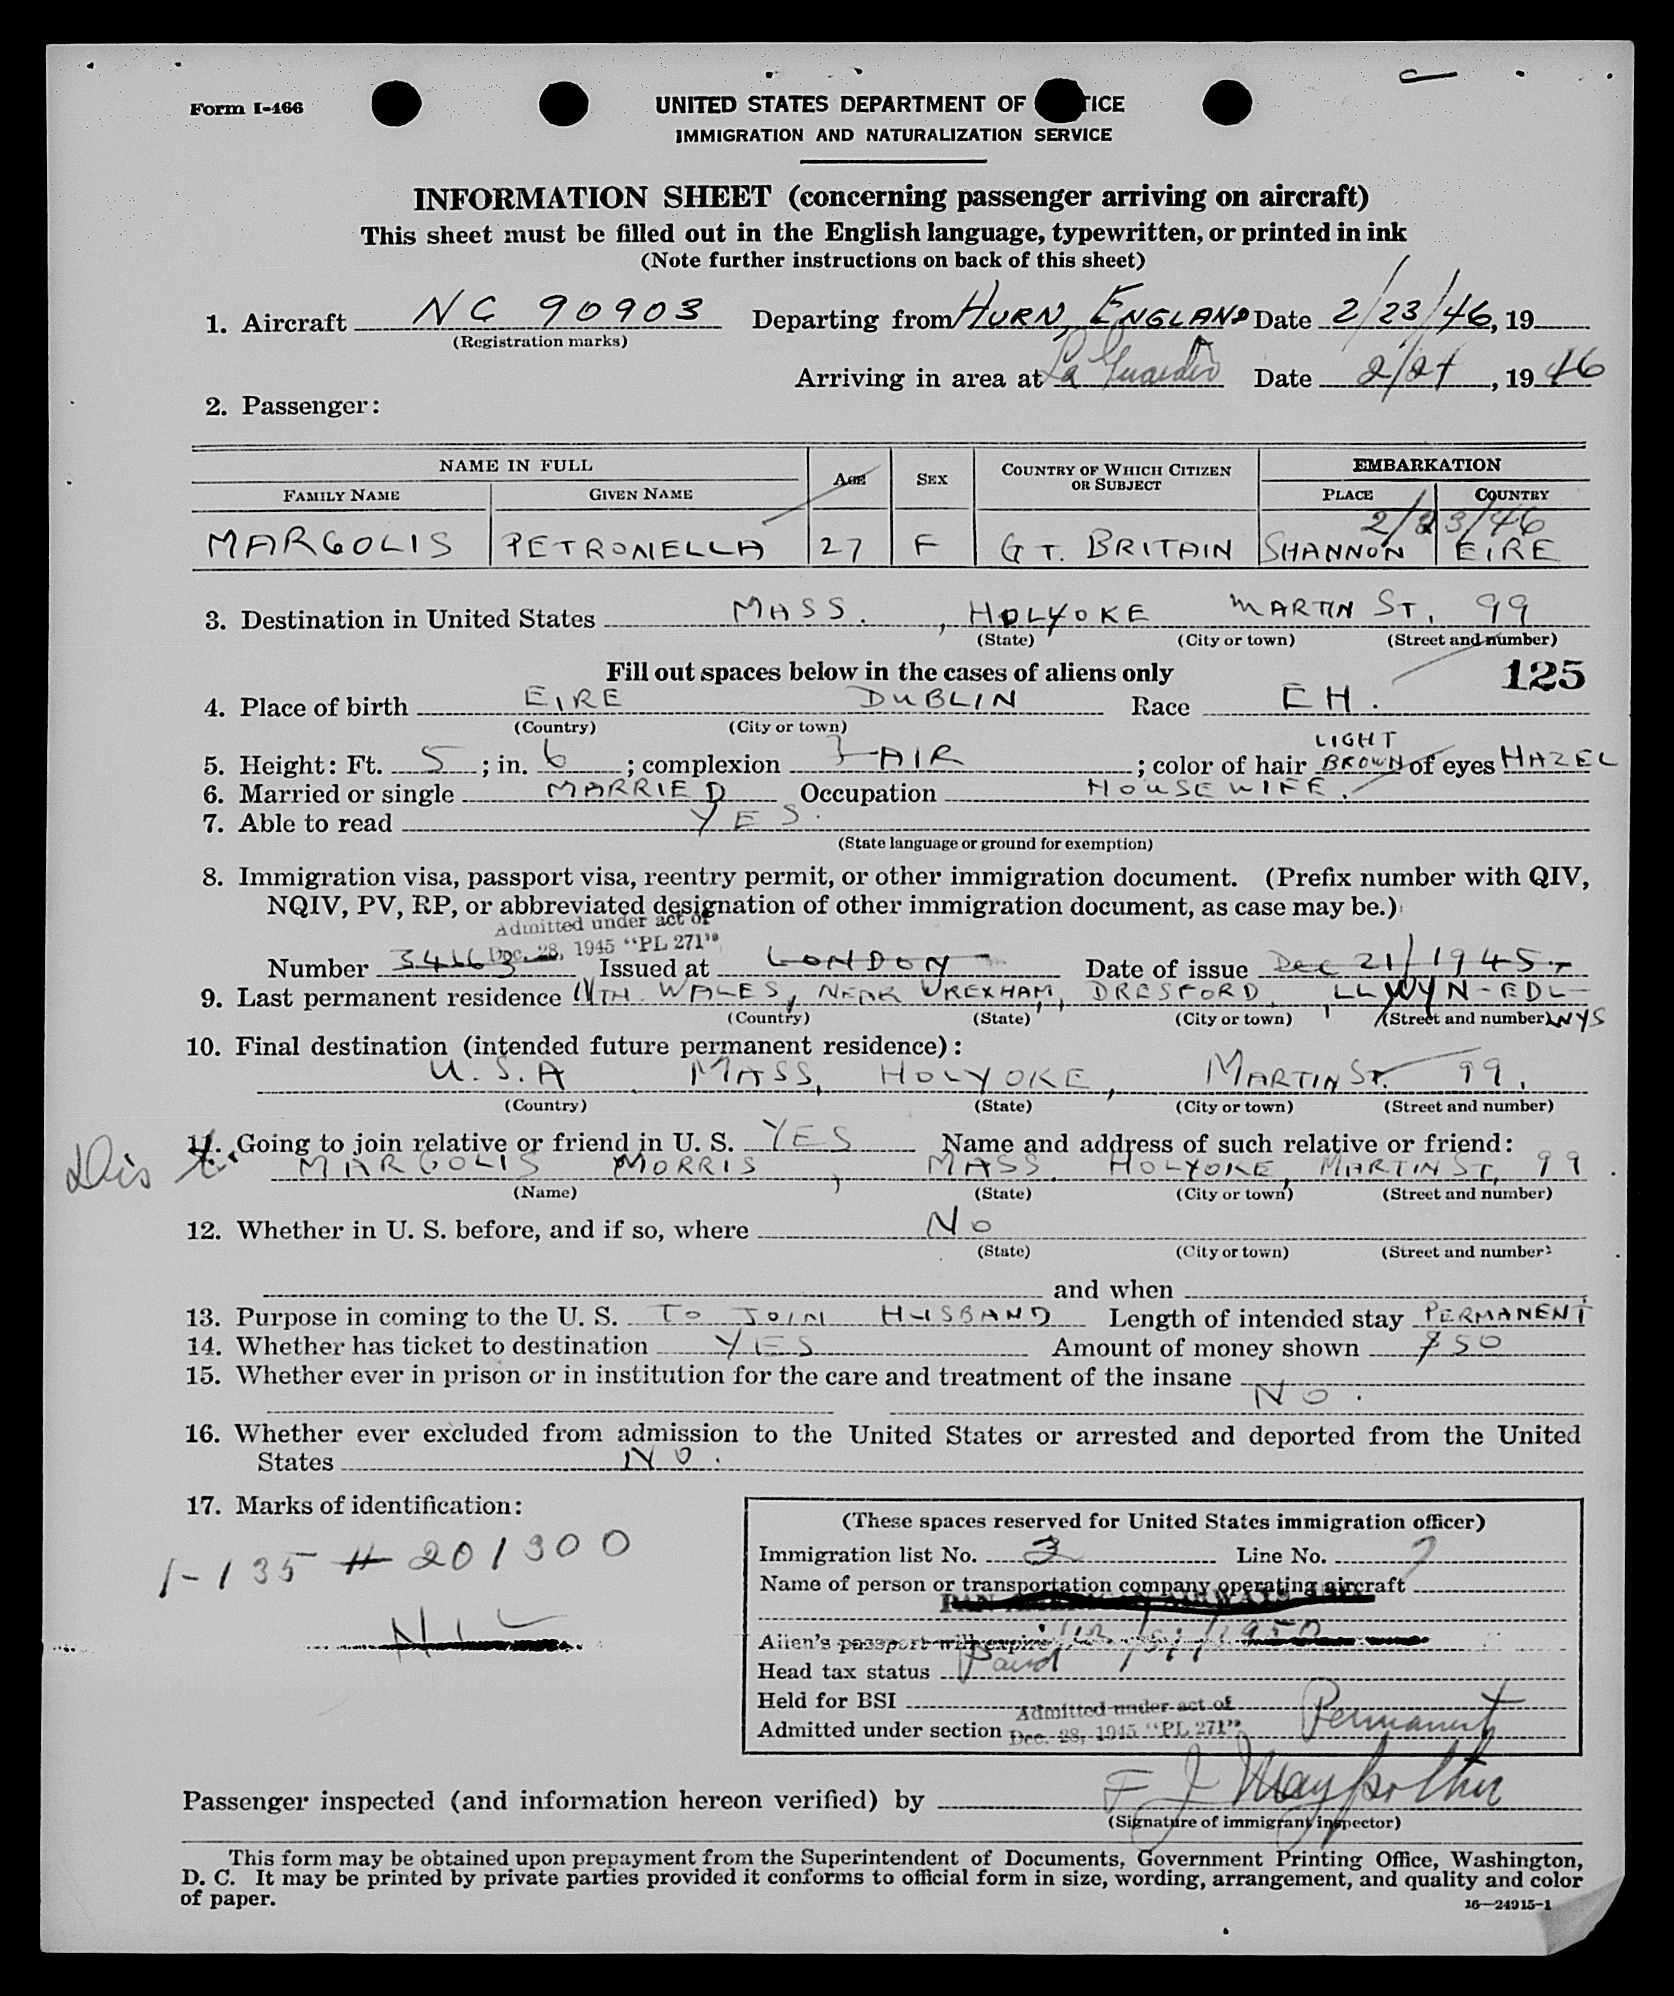 Form I-466
UNITED STATES DEPARTMENT OF TICE
IMMIGRATION AND NATURALIZATION SERVICE
INFORMATION SHEET (concerning passenger arriving on aircraft)
This sheet must be filled out in the English language, typewritten, or printed in ink
(Note further instructions on back of this sheet)
1. Aircraft NC 90903 Departing from HURN, ENGLAND Date 2/23/46, 19
(Registration marks)
Arriving in area at La Guardia Date 2/24, 1946
2. Passenger:
NAME IN FULL AGE SEX COUNTRY OF WHICH CITIZEN OR SUBJECT EMBARKATION
FAMILY NAME GIVEN NAME PLACE COUNTRY
2/23/46
MARGOLIS PETRONELLA 27 F GT. BRITAIN SHANNON EIRE
3. Destination in United States MASS., HOLYOKE MARTIN ST. 99
(State) (City or town) (Street and number)
Fill out spaces below in the cases of aliens only 125
4. Place of birth EIRE DUBLIN Race EH.
(Country) (City or town)
5. Height: Ft. 5; in. 6; complexion FAIR; color of hair LIGHT BROWN of eyes HAZEL
6. Married or single MARRIED Occupation HOUSEWIFE.
7. Able to read YES.
(State language or ground for exemption)
8. Immigration visa, passport visa, reentry permit, or other immigration document. (Prefix number with QIV,
NQIV, PV, RP, or abbreviated designation of other immigration document, as case may be.)
Admitted under act of
Dec. 28, 1945 "PL 271"
Number Issued at LONDON Date of issue Dec 21/1945
9. Last permanent residence NTH. WALES, NEAR WREXHAM, DRESFORD, LLWYN-EDL-
(Country) (State) (City or town) (Street and number) WYS
10. Final destination (intended future permanent residence):
U.S.A MASS, HOLYOKE, MARTIN ST. 99.
(Country) (State) (City or town) (Street and number)
11. Going to join relative or friend in U. S. YES Name and address of such relative or friend:
MARGOLIS MORRIS, MASS. HOLYOKE, MARTIN ST, 99.
(Name) (State) (City or town) (Street and number)
12. Whether in U. S. before, and if so, where NO
(State) (City or town) (Street and number)
and when
13. Purpose in coming to the U. S. TO JOIN HUSBAND Length of intended stay PERMANENT
14. Whether has ticket to destination YES Amount of money shown $50
15. Whether ever in prison or in institution for the care and treatment of the insane
NO.
16. Whether ever excluded from admission to the United States or arrested and deported from the United
States NO.
17. Marks of identification:
I-135 # 201300
NIL
(These spaces reserved for United States immigration officer)
Immigration list No. 3 Line No. 7
Name of person or transportation company operating aircraft
Alien's passport will expire
Head tax status Paid
Held for BSI
Admitted under section Admitted under act of
Dec. 28, 1945 "PL 271" Permanent
Passenger inspected (and information hereon verified) by F J
(Signature of immigrant inspector)
This form may be obtained upon prepayment from the Superintendent of Documents, Government Printing Office, Washington,
D. C. It may be printed by private parties provided it conforms to official form in size, wording, arrangement, and quality and color
of paper.
16—24915-1